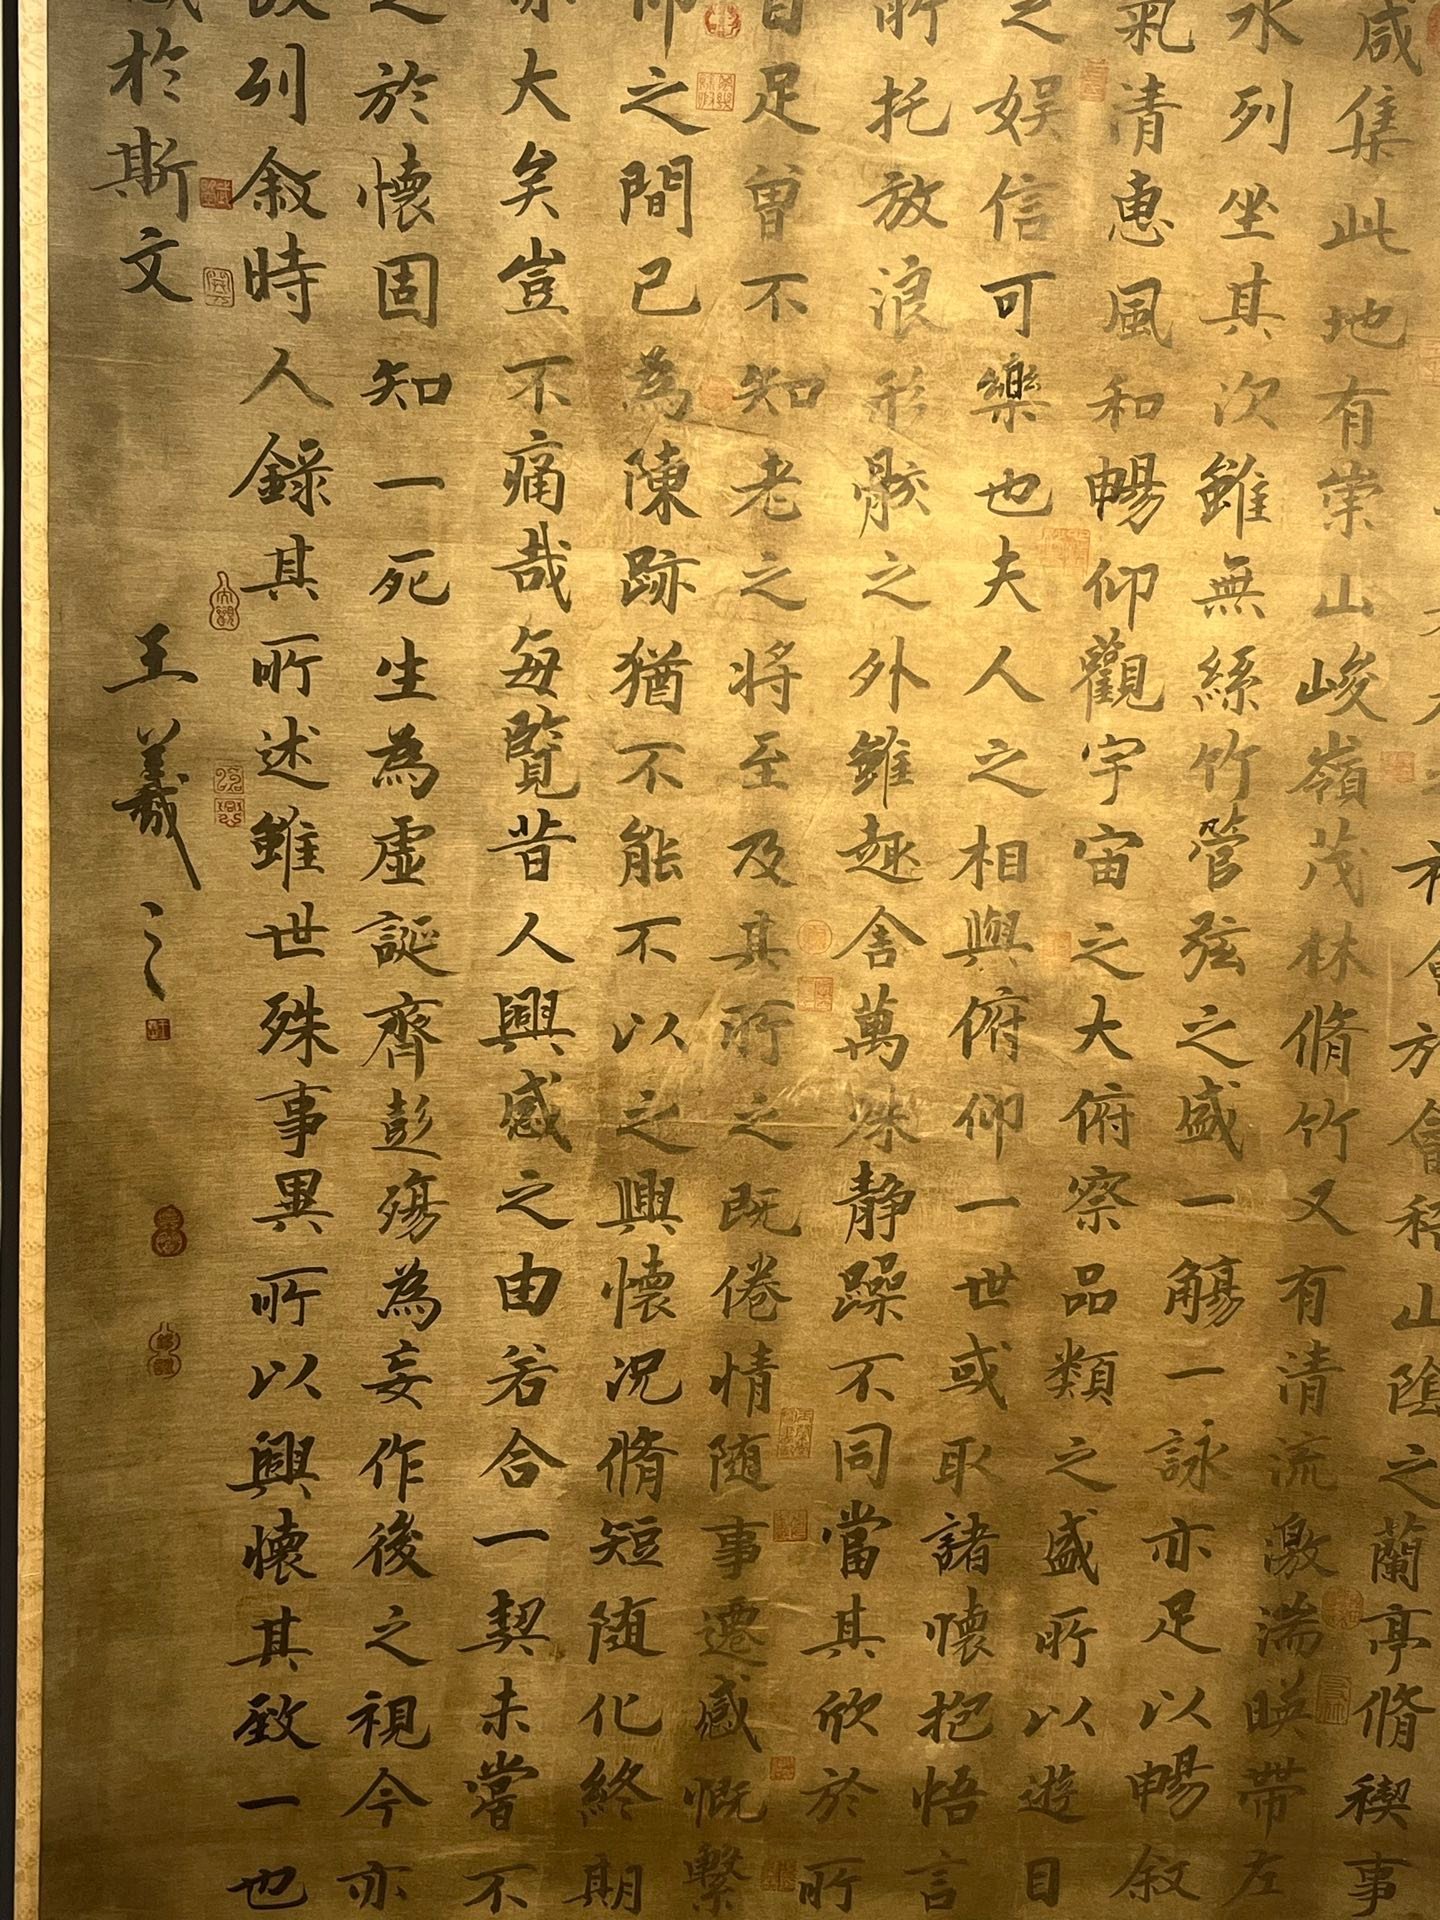 禊會於會稽山陰之蘭亭脩禊事
咸集此地有崇山峻嶺茂林脩竹又有清流激湍暎帶左
水列坐其次雖無絲竹管弦之盛一觴一詠亦足以暢叙
氣清惠風和暢仰觀宇宙之大俯察品類之盛所以遊目
之娛信可樂也夫人之相與俯仰一世或取諸懷抱悟言
所托放浪形骸之外雖趣舍萬殊静躁不同當其欣於所
自足曾不知老之將至及其所之既倦情随事遷感慨繫
仰之間已為陳跡猶不能不以之興懷況脩短随化終期
亦大矣豈不痛哉每覽昔人興感之由若合一契未嘗不
之於懷固知一死生為虛誕齊彭殤為妄作後之視今亦
故列敘時人錄其所述雖世殊事異所以興懷其致一也
感於斯文
王羲之